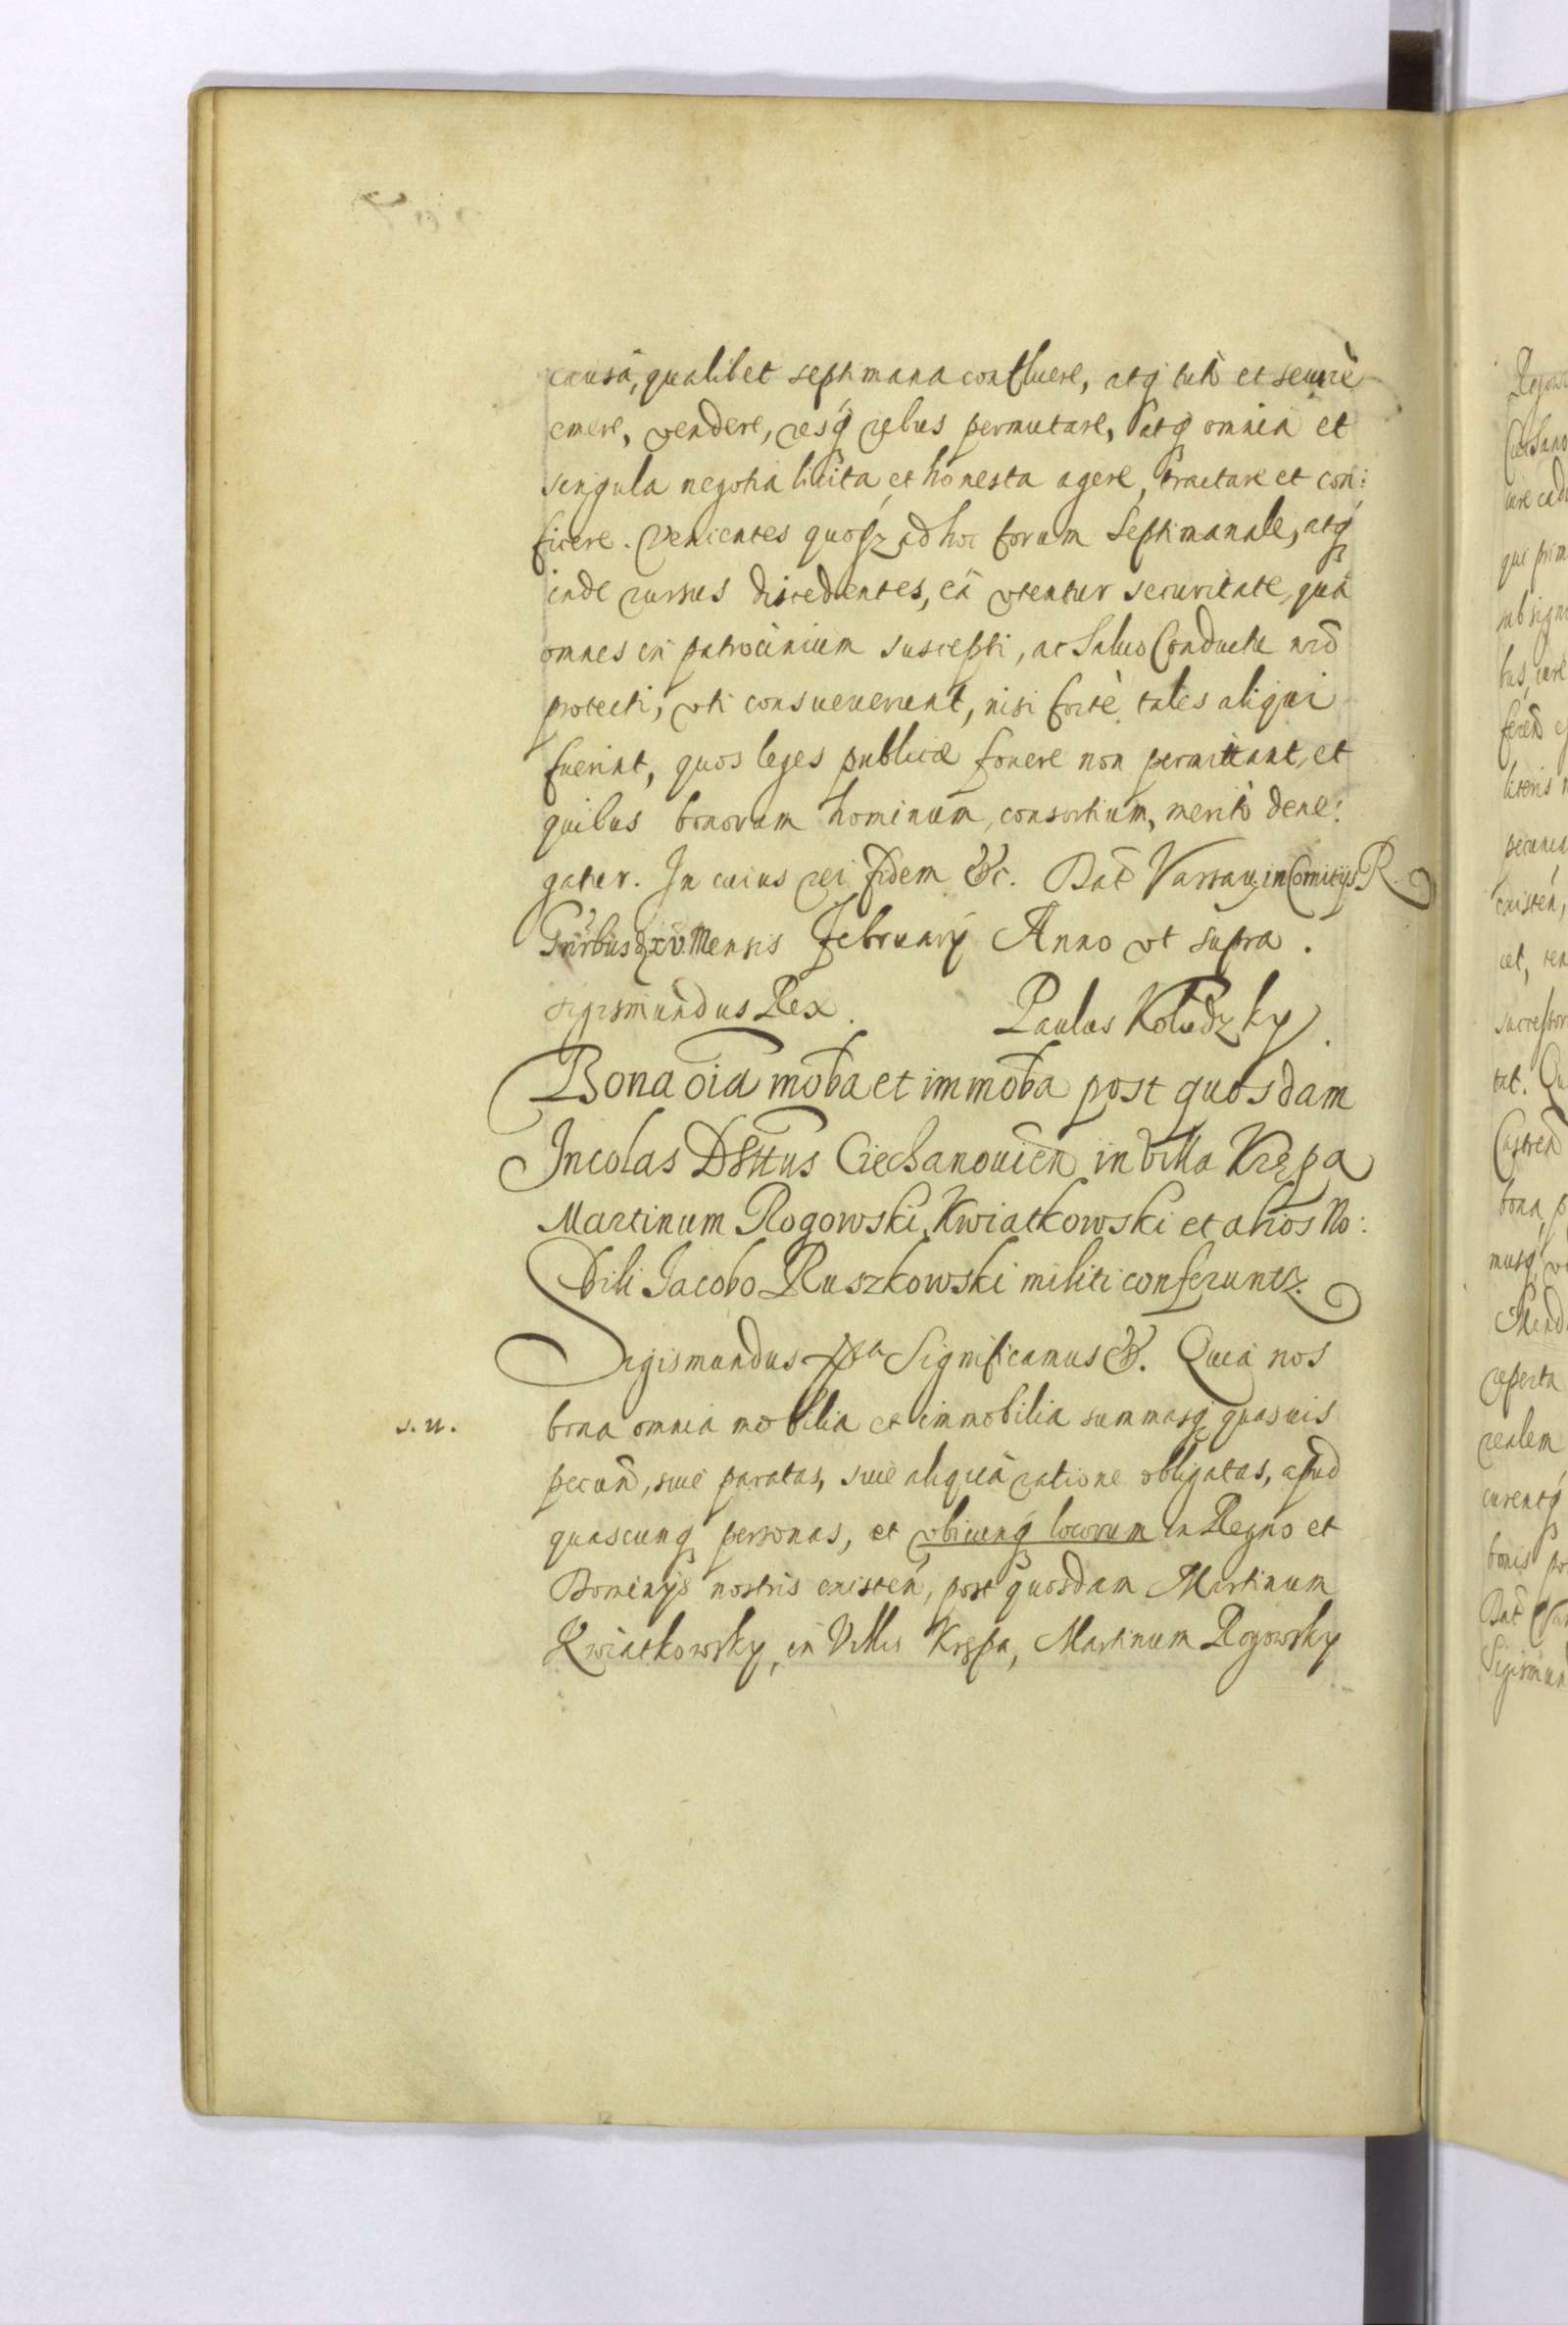 causâ, qualibet septimana confluere, atq tutò et securè
emere, vendere, resq rebus permutare, atq omnia et
singula negotia licita et honesta agere, tractare et con:
ficere. Venientes quosq ad hoc forum Septimanale, atq
inde rursus discedentes, eâ vtentur securitate, quâ
omnes in patrocinium suscepti, ac Saluo Conductu nrõ
protecti, vti consueuerunt, nisi fortè tales aliqui
fuerint, quos leges publicæ fouere non permittant, et
quibus bonorum hominum, consortium, meritò dene:
gatur. In cuius rei fidem &c. Dat Varsau in Comitijs R.
Gnrlbus xv. Mensis February Anno vt supra.
Sigismundus Rex. Paulus Koludzky.
Bona oia moba et immoba post quosdam
Incolas Dstus Ciechanouien in villa Krępa
Martinum Rogowski, Kwiatkowski et alios No:
bili Jacobo Ruszkowski militi conferuntz.
Sigismundus Significamus &. Quia nos
s. n.
bona omnia mobilia et immobilia summasq quasuis
pecun, siue paratas, siue aliqua ratione obligatas, apud
quascunq personas, et vbicunq locorum in Regno et
Dominijs nostris existen, post quosdam Martinum
Kwiatkowsky, in Villa Krępa, Martinum Rogowsky